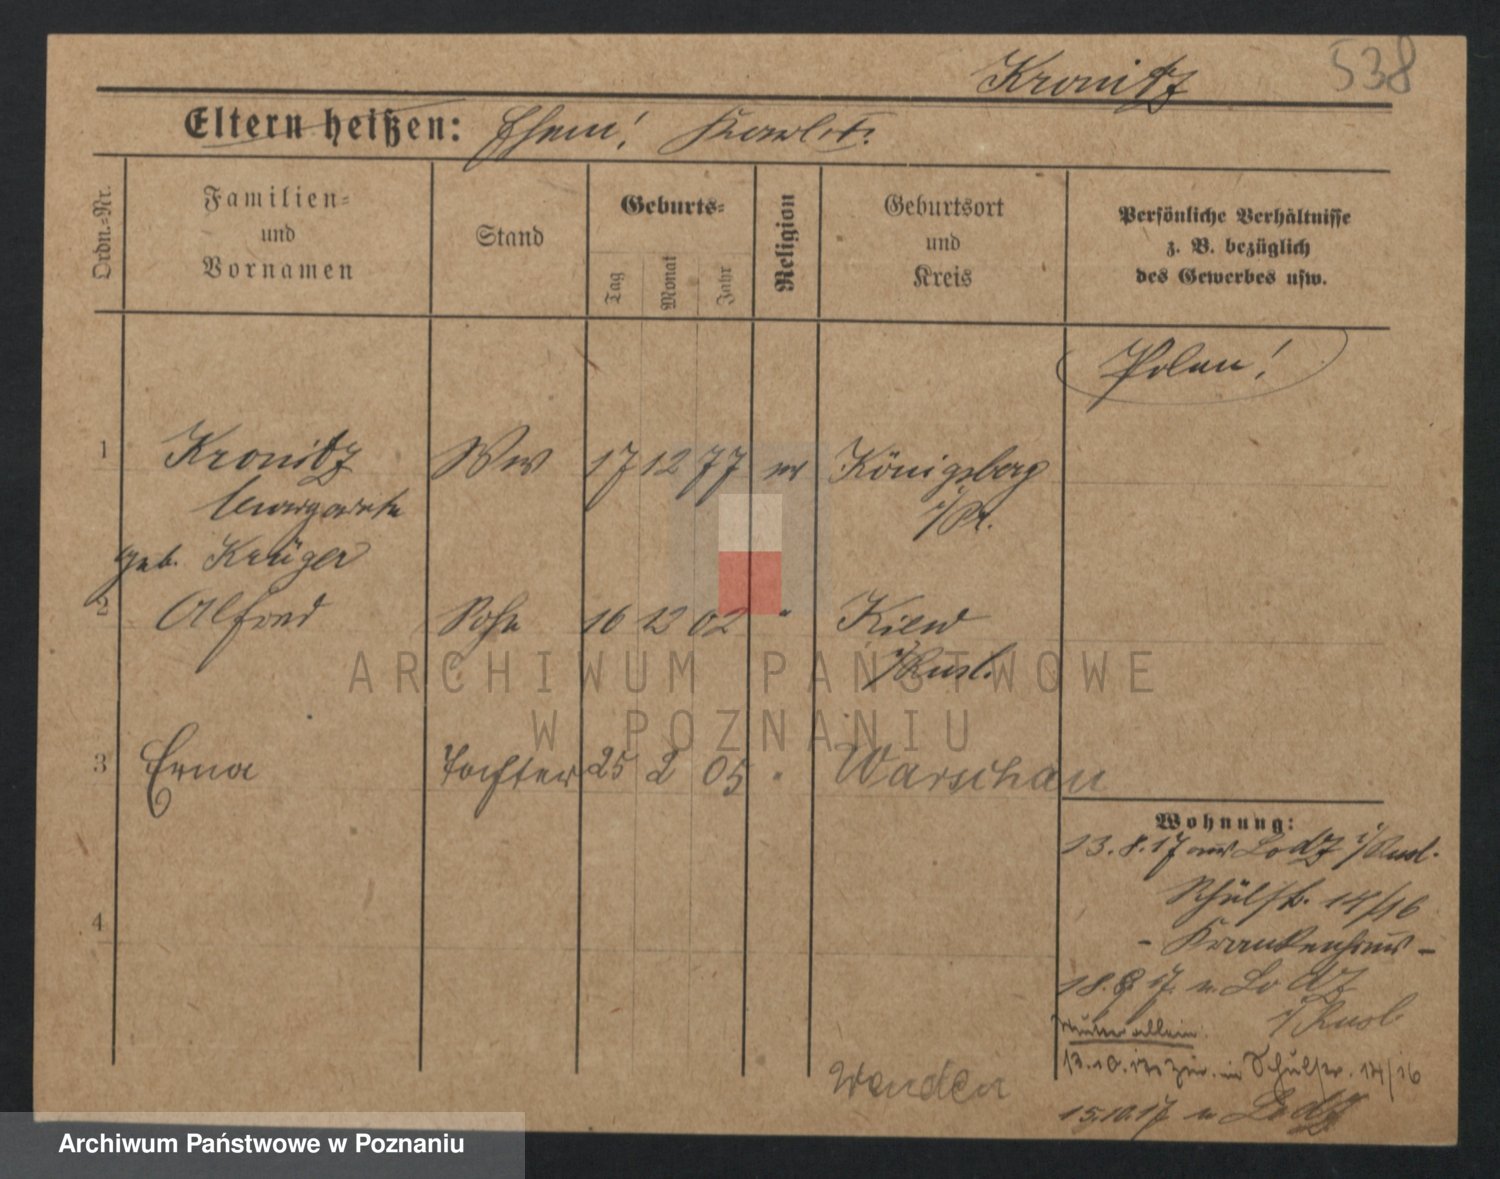 Kronitz 538
Eltern heißen: Ehem! Karl †.
Ordn.-Nr.
Familien-
und
Vornamen
Stand
Geburts-
Tag
Monat
Jahr
Religion
Geburtsort
und
Kreis
Persönliche Verhältnisse
z. B. bezüglich
des Gewerbes usw.
Polen!
1 Kronitz Ww 17 12 77 ev Königsberg
Margarete i/Pr.
geb. Krüger
2 Alfred Sohn 16 12 02 " Kiew
i/Rusl.
3 Erna Tochter 25 2 05 " Warschau
4
Wohnung:
13.8.17 aus Lodz i/Rusl.
Schülstr. 14/16
- Krankenhaus -
18.8.17. n. Lodz
i/Rusl
Mutter allein.
13.10.17 zur. in Schulstr. 14/16
15.10.17 n Lodz
Wenden
ARCHIWUM PAŃSTWOWE
W POZNANIU
Archiwum Państwowe w Poznaniu